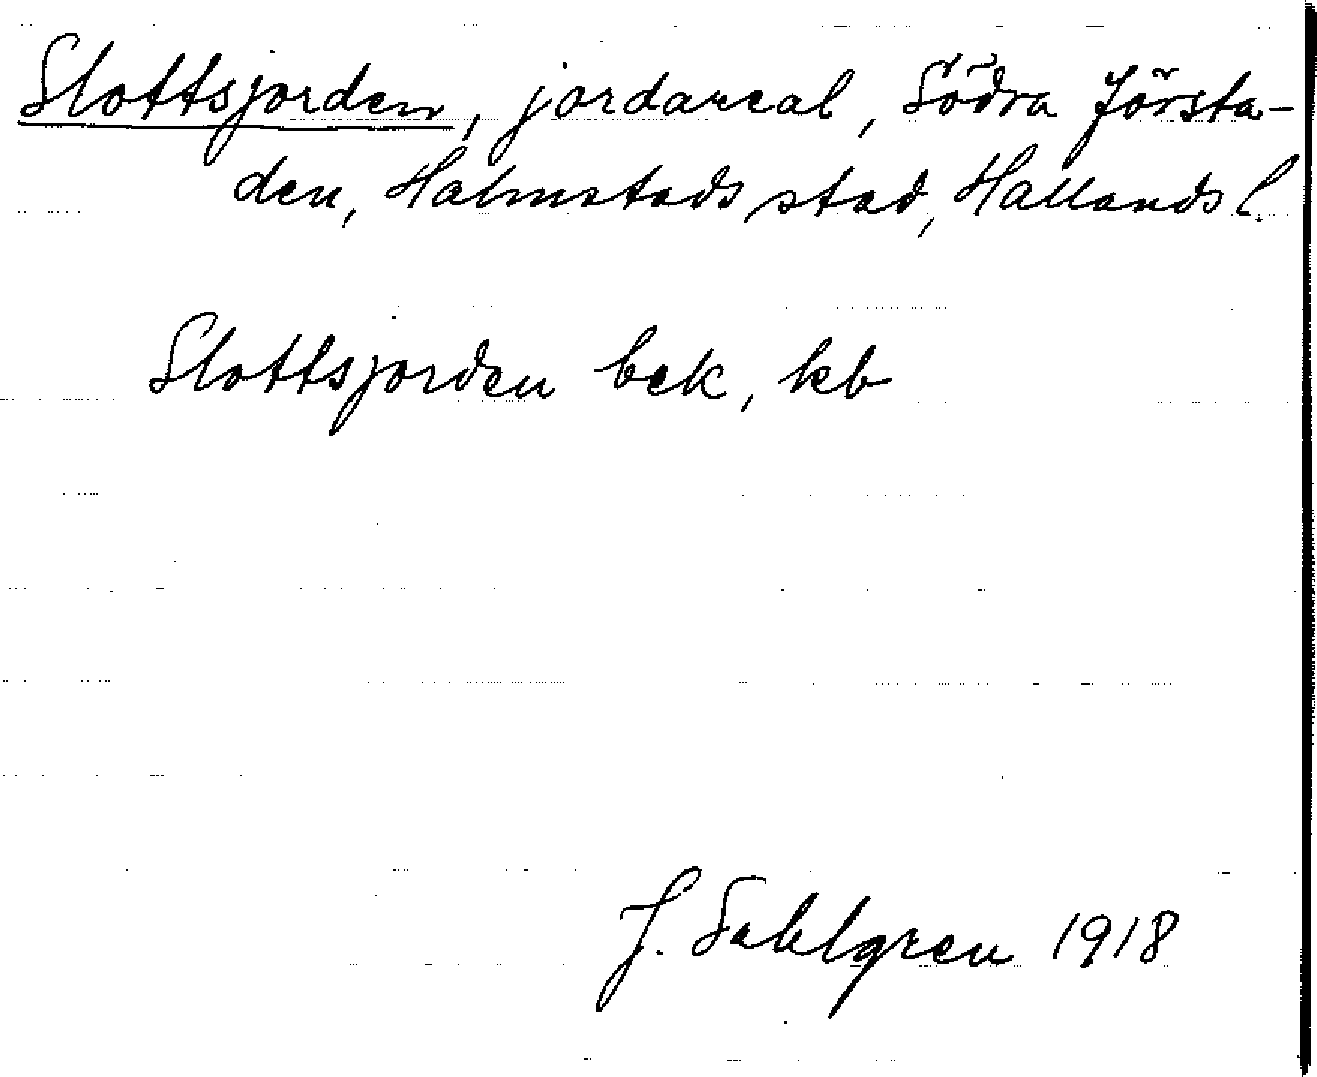 Slottsjorden, jordareal, Södra Första-
den, Halmstads stad, Hallands l.
Slottsjorden bek, kb
J. Sahlgren 1918